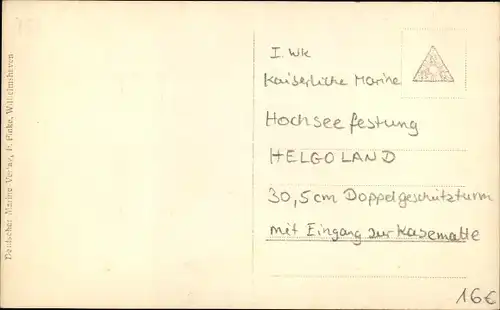 I. Wk
Kaiserliche Marine
Hochseefestung
HELGOLAND
30,5cm Doppelgeschützturm
mit Eingang zur Kasematte
16€
Deutscher Marine Verlag, Wilhelmshaven